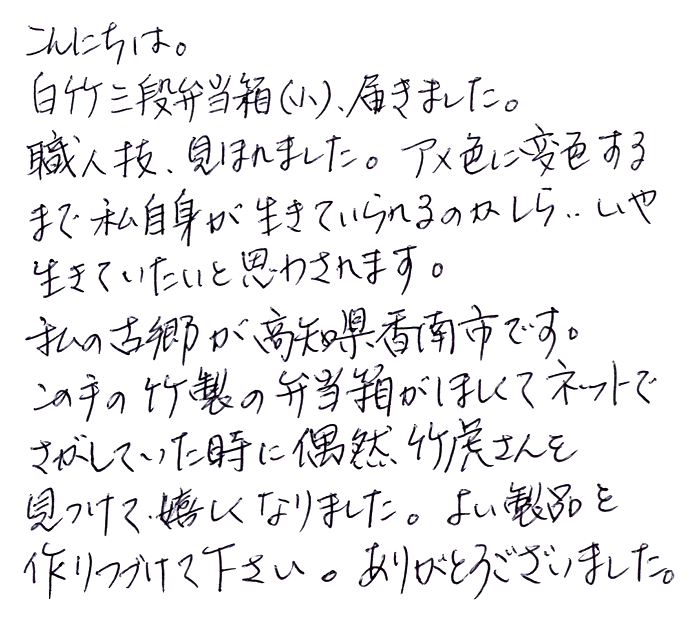 こんにちは。
白竹三段弁当箱(小)、届きました。
職人技、見ほれました。アメ色に変色する
まで私自身が生きていられるのかしら‥いや
生きていたいと思わされます。
私の古郷が高知県香南市です。
この手の竹製の弁当箱がほしくてネットで
さがしていた時に偶然、竹虎さんを
見つけて、嬉しくなりました。よい製品を
作りつづけて下さい。ありがとうございました。